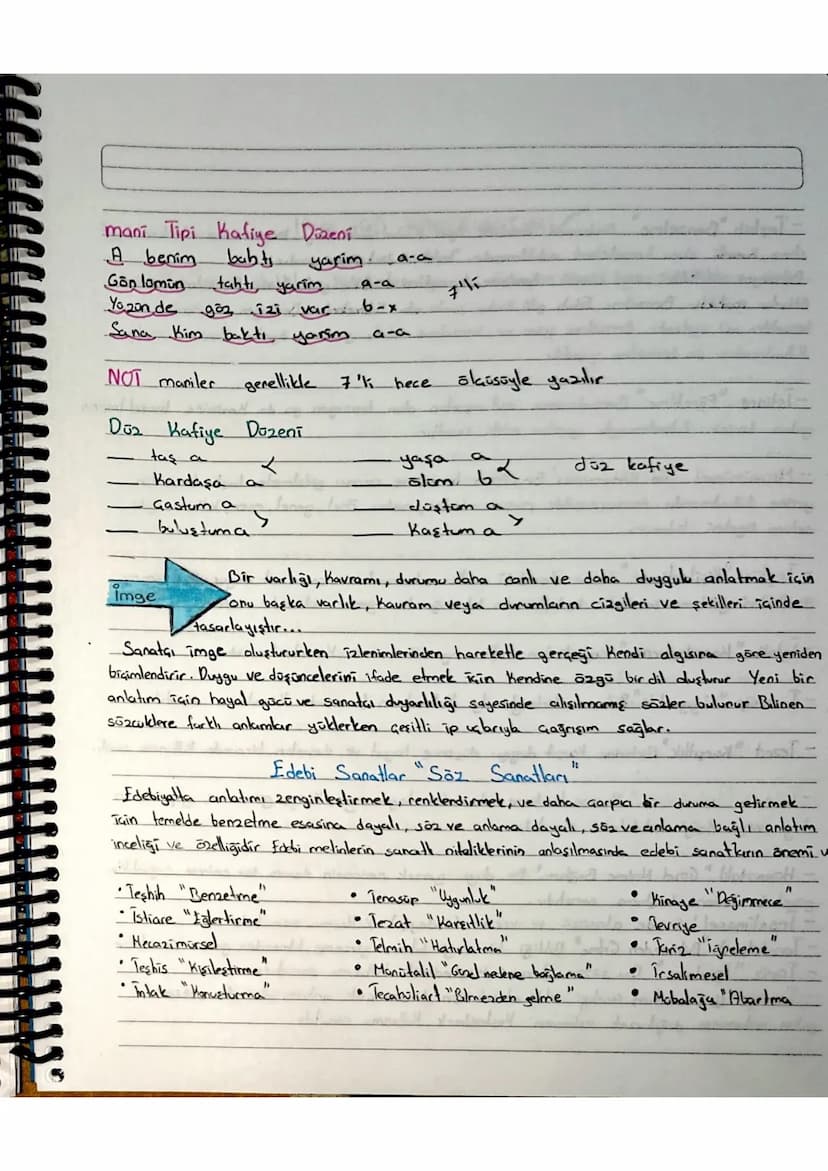 mani Tipi Kafiye Düzeni
A benim bahtı yarim a-a
Gönlümün tahtı yarim a-a 7'li
Yüzünde göz izi var b-x
Sana kim baktı yarim a-a
NOT maniler genellikle 7'li hece ölçüsüyle yazılır
Düz Kafiye Düzeni
taş a yaşa a düz kafiye
Kardaşa a ölüm b
Gaştum a düştüm a
buluştuma Kaştum a
İmge Bir varlığı, Kavramı, durumu daha canlı ve daha duygulu anlatmak için
onu başka varlık, kavram veya durumların cizgileri ve şekilleri içinde
tasarlayıştır...
Sanatçı imge oluştururken izlenimlerinden hareketle gerçeği kendi algısına göre yeniden
biçimlendirir. Duygu ve düşüncelerini ifade etmek için kendine özgü bir dil duşturur Yeni bir
anlatım için hayal gücü ve sanatçı duyarlılığı sayesinde alışılmamış sözler bulunur Bilinen
sözcüklere farklı anlamlar yüklerken çeşitli ip uçlarıyla çağrışım sağlar.
Edebi Sanatlar "Söz Sanatları"
Edebiyatta anlatımı zenginleştirmek, renklendirmek, ve daha çarpıcı bir duruma getirmek
için temelde benzetme esasına dayalı, söz ve anlama dayalı, söz ve anlama bağlı anlatım
inceliği ve özelliğidir Edebi metinlerin sanatlı niteliklerinin anlaşılmasında edebi sanatların önemi v
• Teşhih "Benzetme" • Tenasüp "Uygunluk" • Kinaye "Değinmece"
• İstiare "Eğlertirme" • Tezat "Karşıtlık" • Tevriye
• Mecazimürsel • Telmih "Hatırlatma" • Tariz "İğneleme"
• Teşhis "Kişileştirme" • Hünütalil "Güzel nedene bağlama" • İrsalimesel
• İntak "Konuşturma" • Tecahüliarif "Bilmezden gelme" • Mübalağa "Abartma